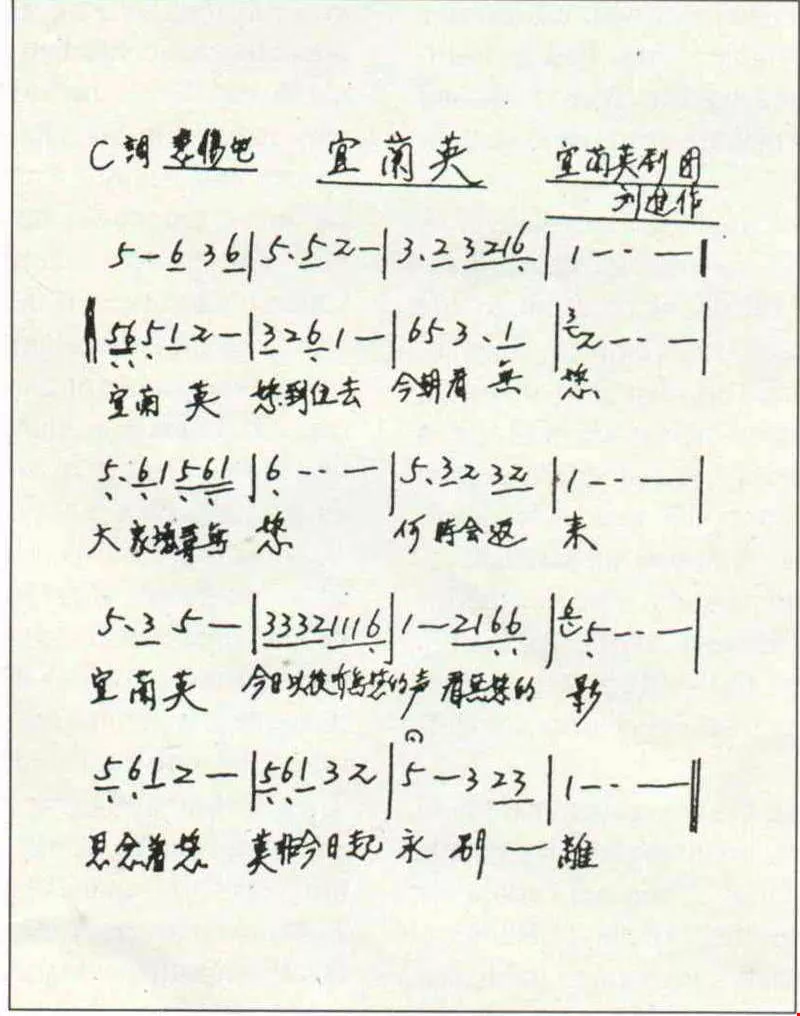 C調 悲傷地 宜蘭英 宜蘭英剧团
刘進作
5 - 6 3 6 | 5. 5 2 - | 3. 2 3 2 1 6 | 1 - - - |
5 6 5 1 2 - | 3 2 6 1 - | 6 5 3 . 1 | 3 2 - - - |
宜蘭 英 您到位去 今朝看 無 您
5. 6 1 5 6 1 | 6 - - - | 5. 3 2 3 2 | 1 - - - |
大家 無 您 何時会返 來
5. 3 5 - | 3 3 3 2 1 1 1 6 | 1 - 2 1 6 6 | 6 5 - - - |
宜蘭英 今日以後听無您的声 看無您的 影
5 6 1 2 - | 5 6 1 3 2 | 5 - 3 2 3 | 1 - - - ‖
思念着您 莫非今日起 永 别 一 離